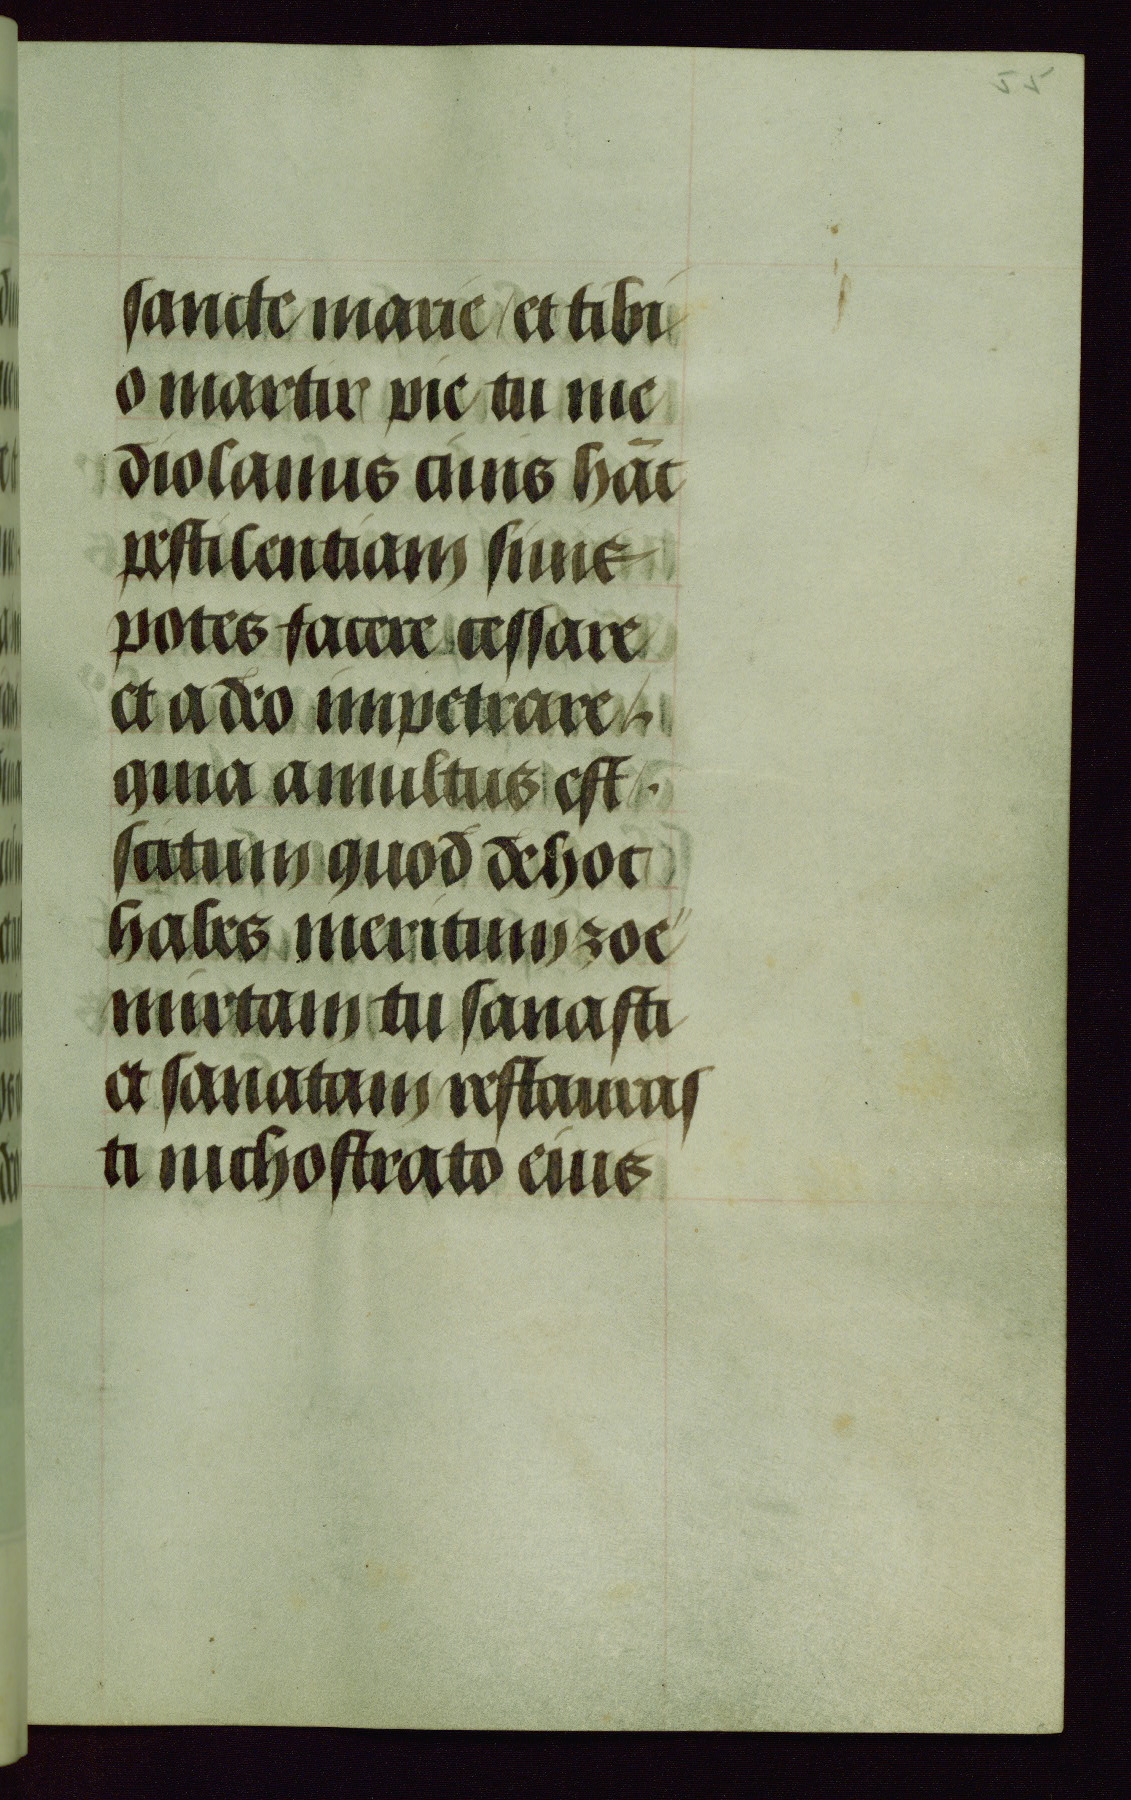 sancte marie / et tibi
o martir pie tu me
diolanus ciuis hāc
pestilentiam siue
potes facere cessare
et a deo impetrare /.
quia a multus est /.
scitum quod de hoc
habes meritum zoe
mirtam tu sanasti
et sanatam restauras
ti nichostrato eius